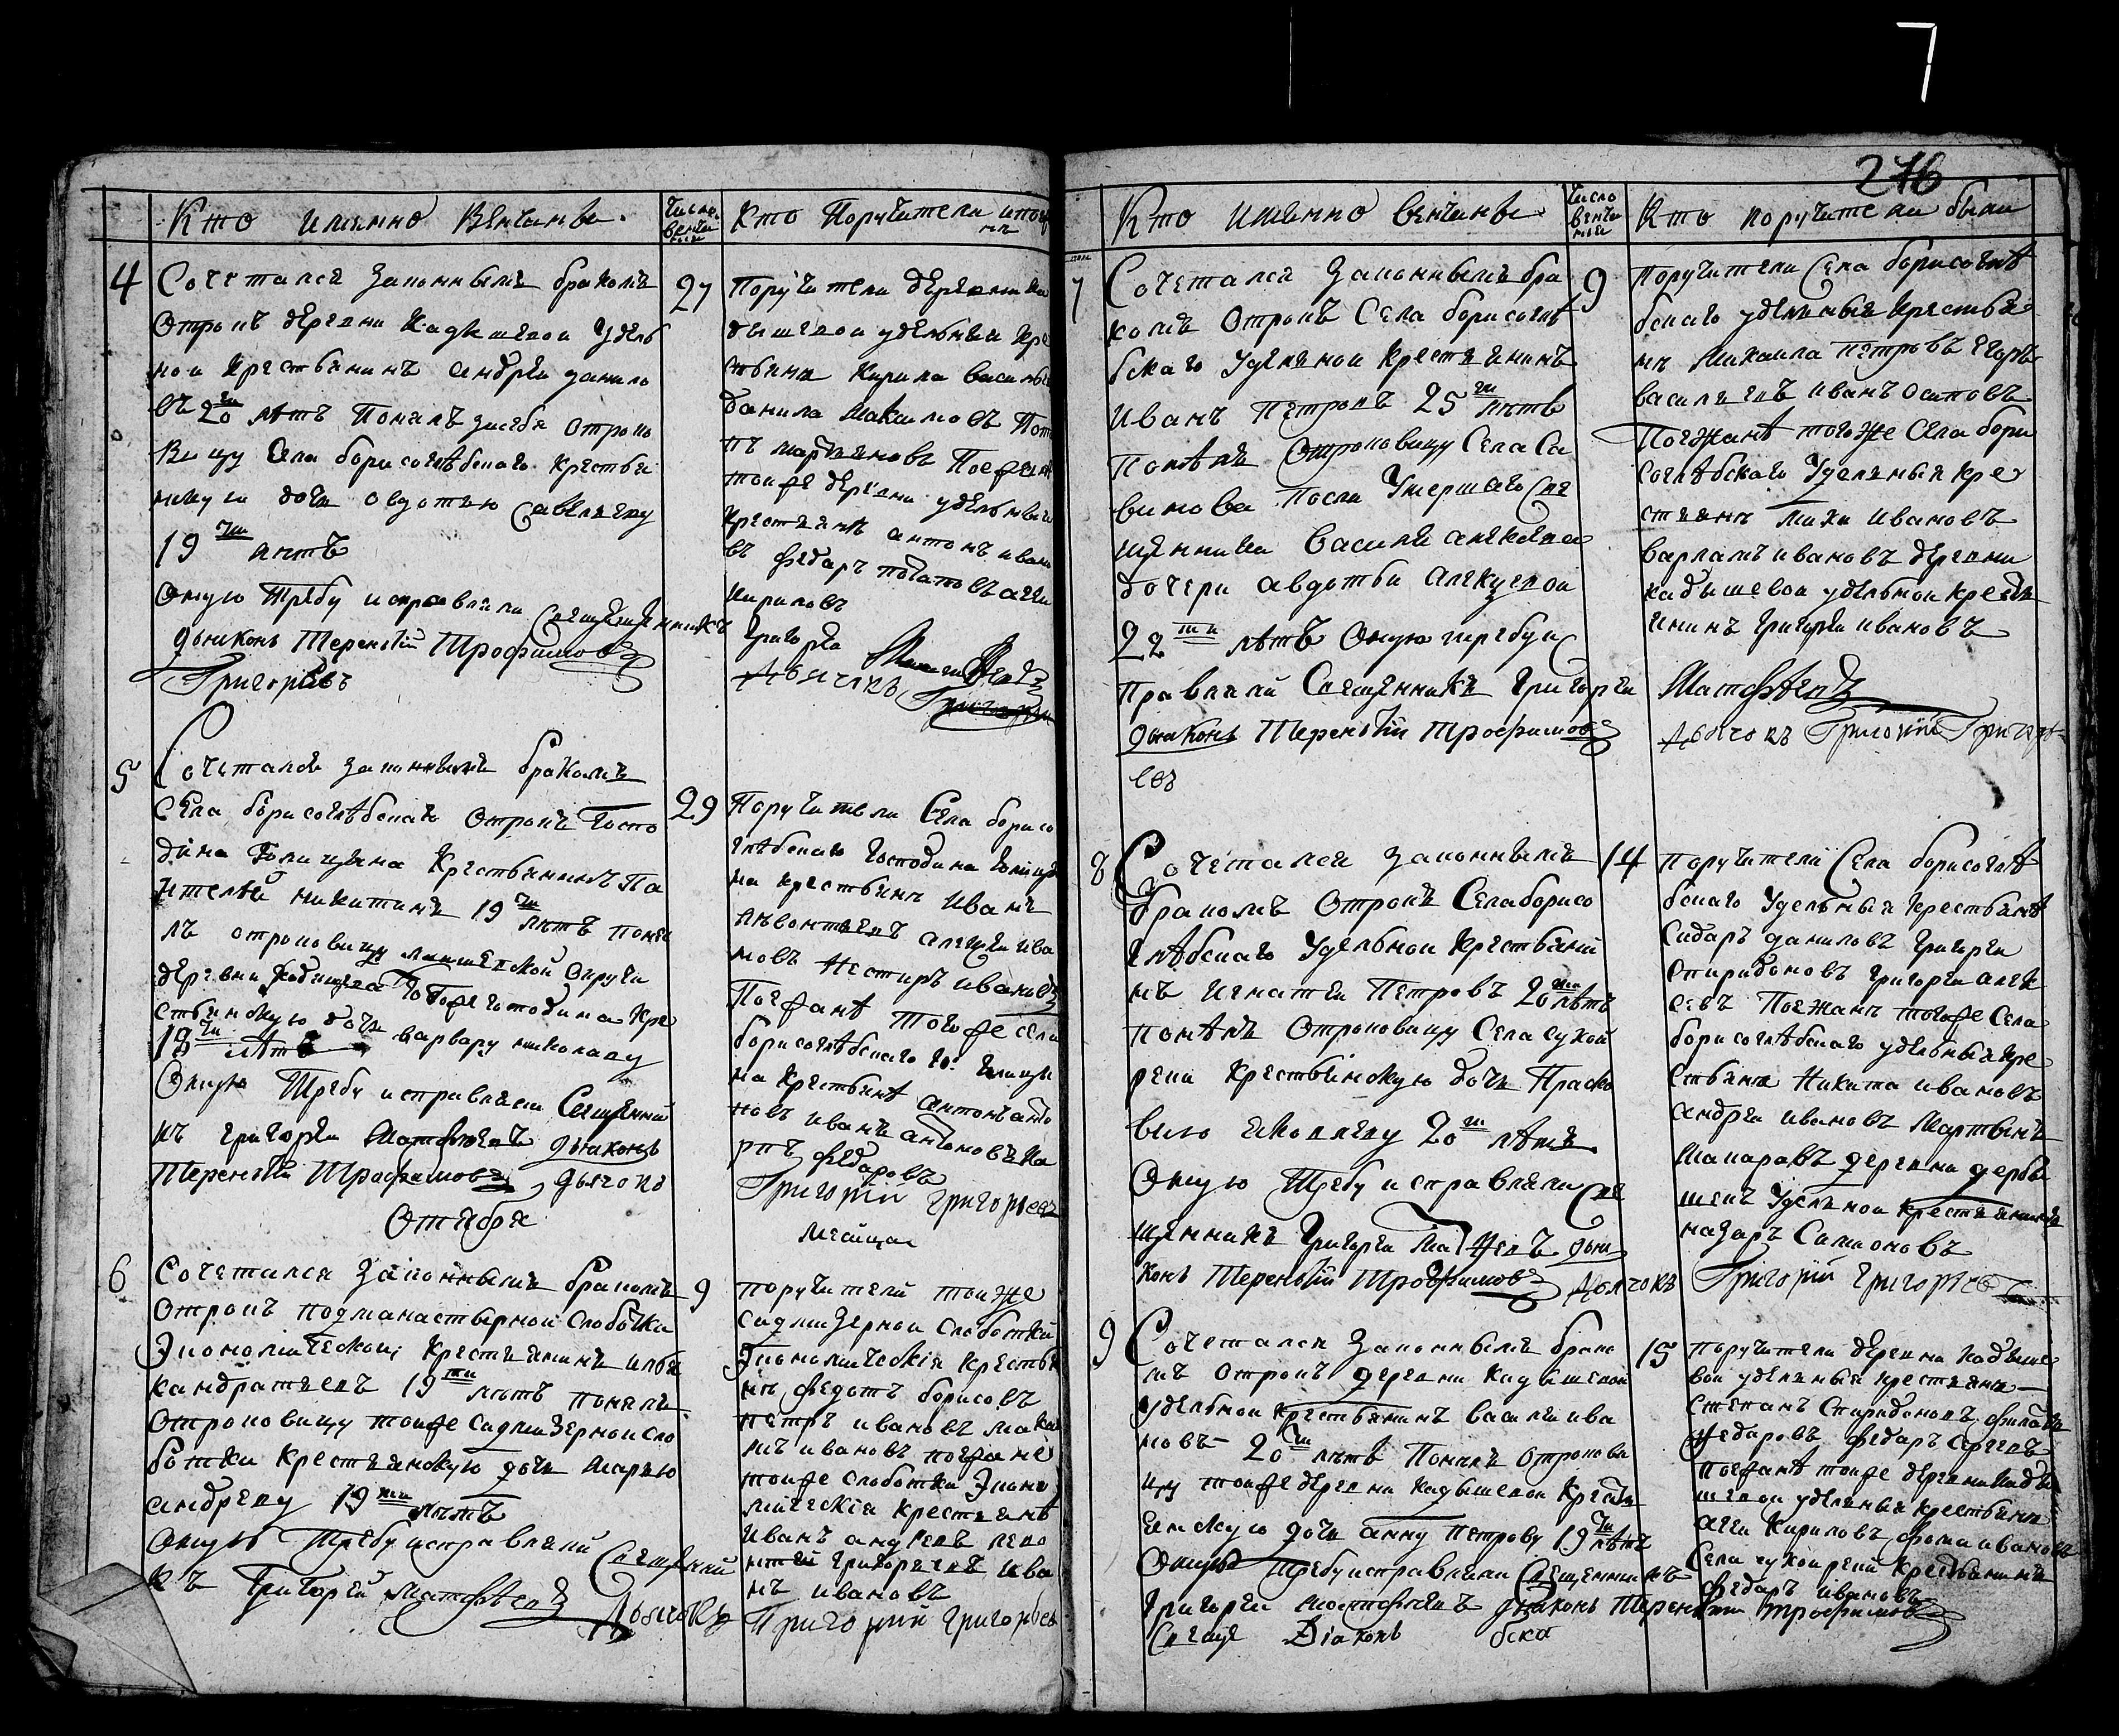 7
276
Кто имянно Венчаны.
Число венчания
Кто Поручители
4
Сочетался законнымъ бракомъ
Отрокъ деревни Кадышевой Удель
ной Крестьянинъ андрей данило
въ 20ти летъ Понялъ засебя отроко
Вицу Села борисоглебскаго крестья
нскую дочь овдотью савельеву
19ти летъ
Оную Требу исправляли священникъ
дьяконъ Терентий Трофимовъ
Григорьевъ
27
Поручители деревни ка
дышевой удельныи кре
стьяня Кирила васильевъ
данила Максимовъ
мартиновъ Поезжанѣ
тойже деревни удельныи
крестьянѣ антонъ ивано
въ федаръ потаповъ
кириловъ
Григорей Матфеевъ
Дьячокъ Григорий
5
Сочетался законнымъ бракомъ
Села борисоглебскаго Отрокъ Госпо
дина Голицына Крестьянинъ Па
нтелей никитинъ 19ти летъ поня
лъ отроковицу округи
деревни Тогоже господина Кре
стьянскую дочь варвару николаеву
18ти летъ
Оную Требу исправляли Священни
къ григорей Матфеевъ дьяконъ
Терентий Трофимовъ дьячокъ
29
Поручители Села борисо
глебскаго господина голицы
на крестьянъ Иванъ
лѣвонтьевъ алексей ива
новъ Нестиръ ивановъ
Поезжанѣ тогоже села
борисоглебскаго го: голицы
на крестьянѣ антонъ анто
новъ иванъ антоновъ ка
рпъ федаровъ
Григорий григорьевъ
Октября
месяца
6
Сочетался законнымъ бракомъ
Отрокъ подманастырной слоботки
Экономической крестьянинъ илья
кандратьевъ 19ти летъ понялъ
Отроковицу тойже сло
ботки крестьянскую дочь марью
андрееву 19ти летъ
Оную Требу исправляли Священни
къ Григорей Матфеевъ Дьячокъ
9
поручители тойже
слоботки
Экономическия крестья
нѣ федотъ борисовъ
петръ ивановъ
ивановъ поезжане
тойже слоботки Эконо
мическия крестьянѣ
Иванъ андреевъ лево
нтей григорьевъ ива
нъ ивановъ
Григорий григорьевъ
Кто имянно венчаны
Число венчания
Кто поручители были
7
Сочетался законнымъ бра
комъ Отрокъ Села борисоглѣ
бскаго Уделной крестьянинъ
Иванъ петровъ 25ти лѣтъ
Понялъ Отроковицу Села Са
винова После Умершаго Свя
щенника Василья алексѣева
дочери авдотьи Алексеевой
22ти лѣтъ Оную требу ис
правляли Священникъ Григорей
дьяконъ Терентий Трофимовъ
евъ
9
Поручители Села борисоглѣ
бскаго уделныя Крестья
нѣ Михаила петровъ Егоръ
васильевъ иванъ осиповъ
Поезжанѣ тогоже Села бори
соглѣбскаго Уделныя кре
стьянѣ Михей ивановъ
варламъ ивановъ деревни
кадышевой удельной кресть
янинъ григорей ивановъ
Матфеевъ
Дьячокъ Григорий Григорь
8
Сочетался законнымъ
бракомъ Отрокъ Села борисо
глѣбскаго Удельной крестьяни
нъ Игнатей Петровъ 20ти лѣтъ
понялъ Отроковицу Села сухой
реки Крестьянскую дочь Праско
вью Яковлеву 20ти лѣтъ
Оную Требу исправляли Свя
щенникъ Григорей Матфеевъ дья
конъ Терентий Трофимовъ Дьячокъ
14
поручители Села борисоглѣ
бскаго Удельныя крестьянѣ
Сидаръ даниловъ григорей
спиридоновъ григорей алек
сеевъ Поезжанѣ тогоже Села
борисоглѣбскаго удельныя кре
стьяня Никита ивановъ
андрей ивановъ Мартынъ
Макаровъ деревни дербы
шекъ Уделной крестьянинъ
назаръ Самсоновъ
Григорий григорьевъ
9
Сочетался законнымъ брако
мъ Отрокъ деревни Кадышевой
удельной крестьянинъ василей ива
новъ 20ти лѣтъ Понялъ Отрокови
цу тойже деревни кадышевой Кресть
янскую дочь анну петрову 19ти лѣтъ
Оную Требу исправляли Священникъ
Григорей Матфеевъ дьяконъ Терентий Трофимовъ
Свяще Dіаконъ
15
поручители деревни кадыше
вой уделныя крестьянѣ
Степанъ Спиридоновъ
федаровъ федаръ сергеевъ
поезжанѣ тойже деревни кады
шевой уделныя крестьянѣ
Кириловъ фома ивановъ
Села сухой реки крестьянинъ
федаръ ивановъ